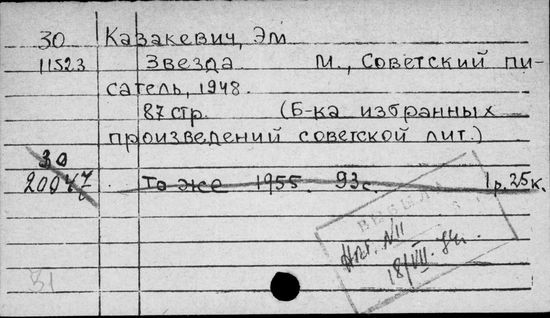 30 Казакевич, Эм
11523 Звезда М., Советский пи-
сатель, 1948.
87 стр. (Б-ка избранных
произведений советской лит.)
30
20047 То же 1955. 93 с. 1 р. 25 к.
Акт. N11
18/VII.
31